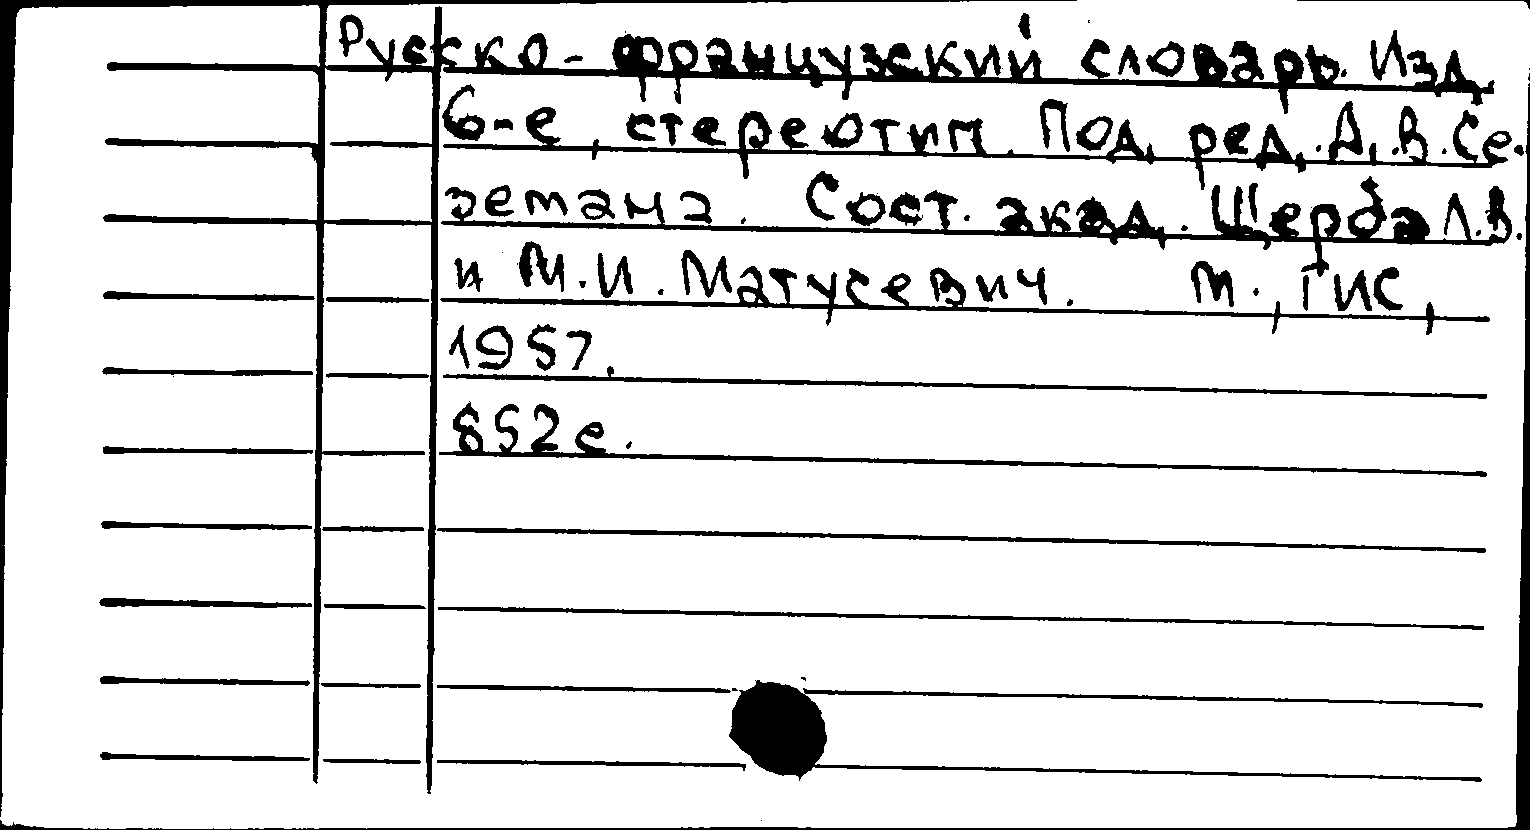 Русско-французский словарь. Изд.
6-е, стереотип. Под. ред. Д.В.Се-
земана. Сост. акад. Щерба Л.В.
и М.И.Матусевич. М., ГИС,
1957.
852с.